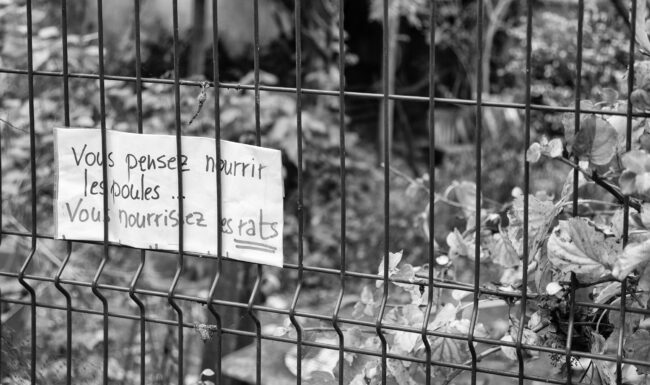 Vous pensez nourrir
les poules ...
Vous nourrissez les rats